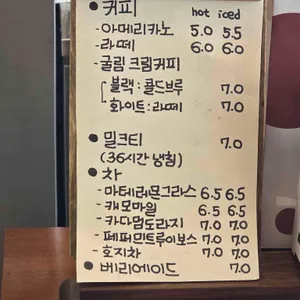 • 커피 hot iced
- 아메리카노 5.0 5.5
- 라떼 6.0 6.0
- 굴림 크림커피
블랙 : 콜드브루 7.0
화이트 : 라떼 7.0
• 밀크티 7.0
(36시간 냉침)
• 차
- 마테레몬그라스 6.5 6.5
- 캐모마일 6.5 6.5
- 카다멈도라지 7.0 7.0
- 페퍼민트루이보스 7.0 7.0
- 호지차 7.0 7.0
• 베리에이드 7.0